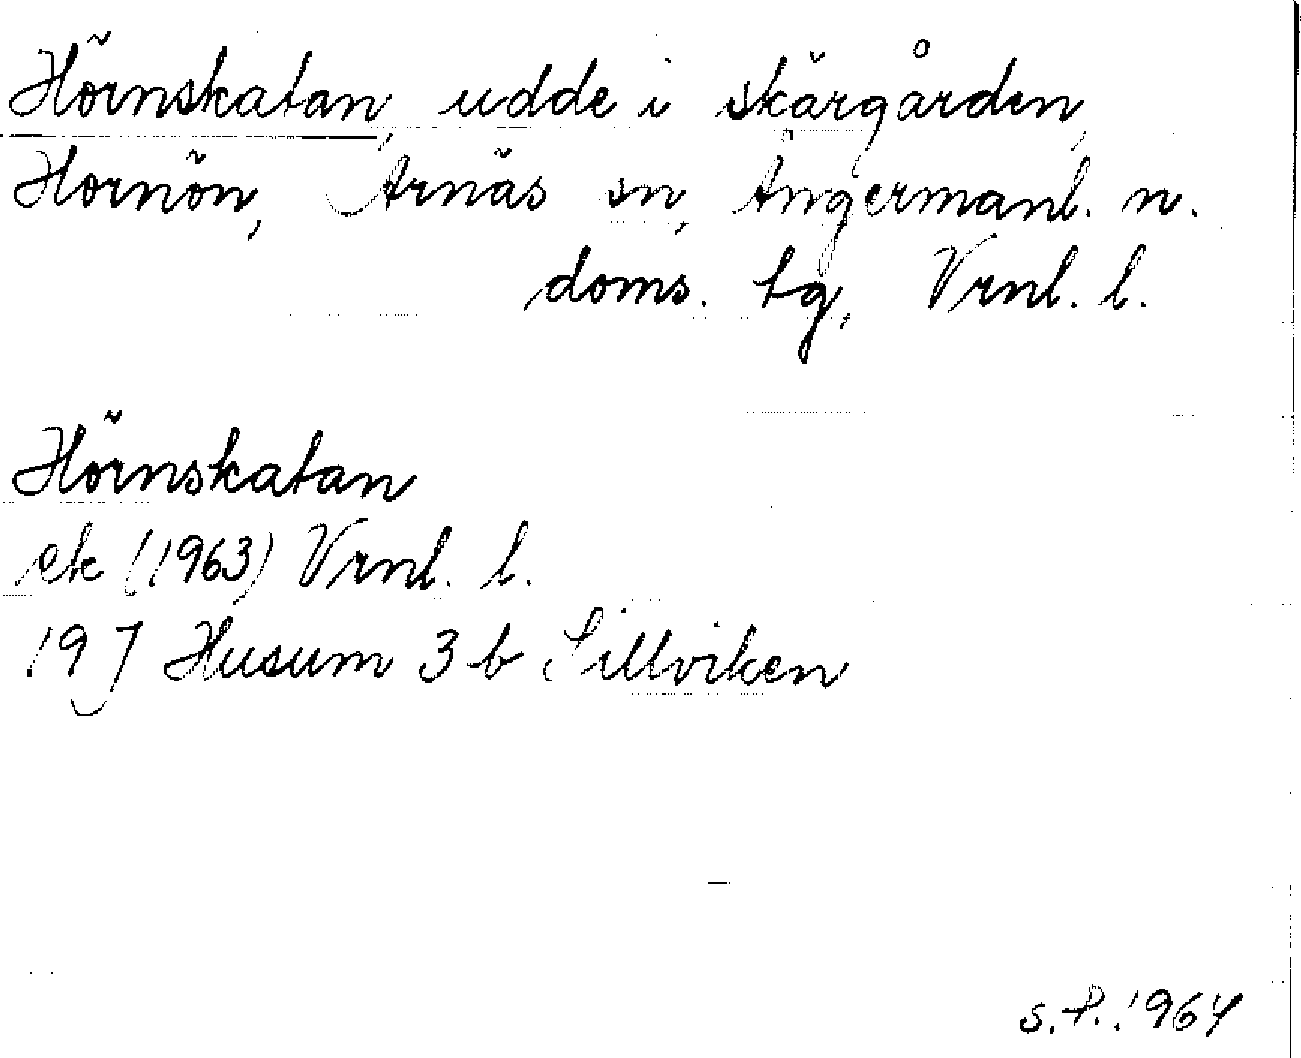 Hörnskatan, udde i skärgården,
Hornön, Arnäs sn, Ångermanl. n.
doms. tg, Vrnl. l.
Hörnskatan
ek (1963) Vrnl. l.
19 J Husum 3 b Sillviken
s.f. 1964